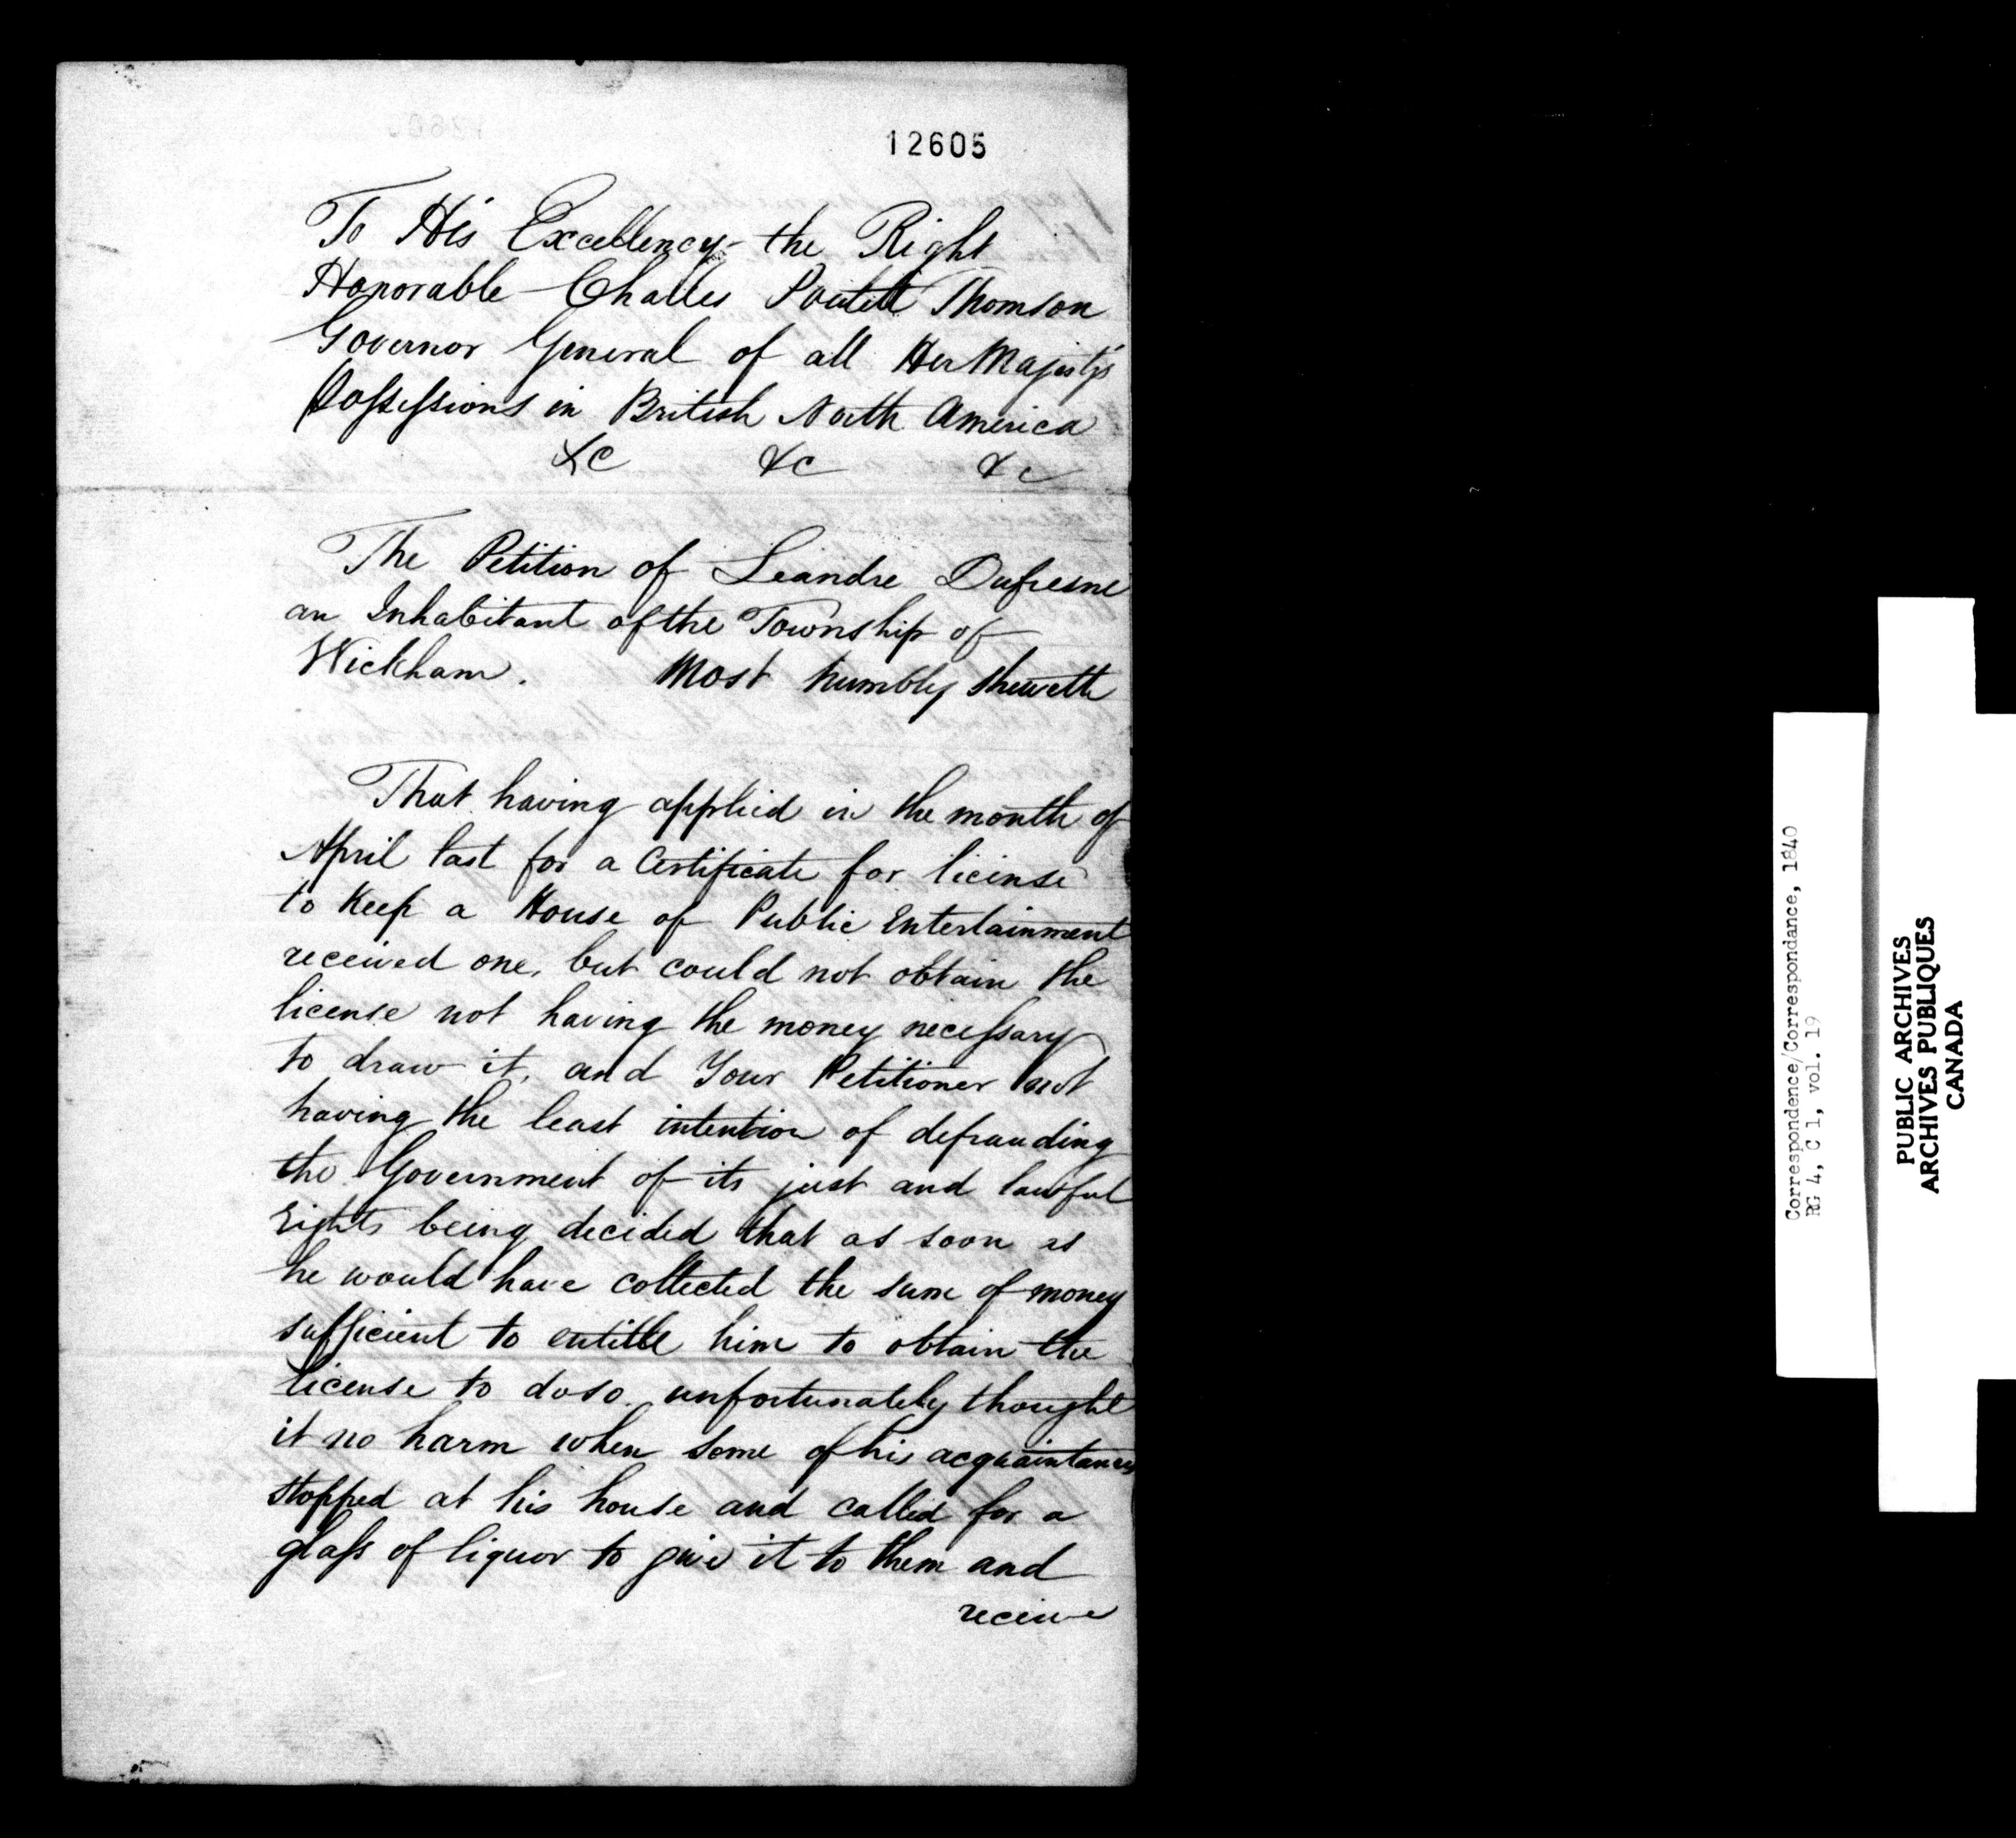 12605
To His Excellency the Right
Honorable Charles Poulett Thomson
Governor General of all Her Majesty's
Possessions in British North America
&c &c &c
The Petition of Leandre Dufresne
an Inhabitant of the Township of
Wickham. Most humbly sheweth
That having applied in the month of
April last for a Certificate for license
to Keep a House of Public Entertainment
received one, but could not obtain the
license not having the money necessary
to draw it, and Your Petitioner not
having the least intention of defrauding
the Government of its just and lawful
rights being decided that as soon as
he would have collected the sum of money
sufficient to entitle him to obtain the
license to do so unfortunately thought
it no harm when some of his acquaintances
stopped at his house and called for a
glass of liquor to give it to them and
receive
Correspondence/Correspondance, 1840
RG 4, C 1, vol. 19
PUBLIC ARCHIVES
ARCHIVES PUBLIQUES
CANADA